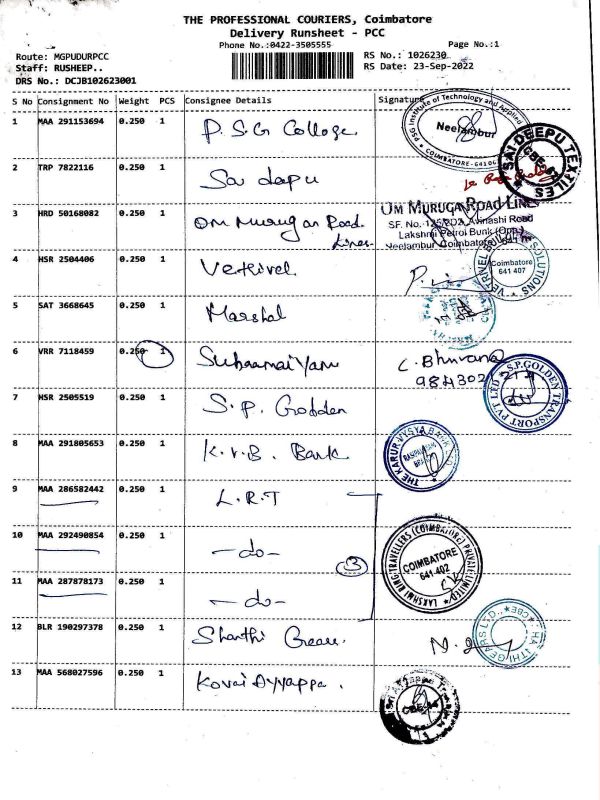 THE PROFESSIONAL COURIERS, Coimbatore
Delivery Runsheet - PCC
Phone No.:0422-3505555
Page No.:1
Route: MGPUDURPCC
Staff: RUSHEEP..
DRS No.: DCJB102623001
RS No.: 1026230
RS Date: 23-Sep-2022
S No Consignment No Weight PCS Consignee Details Signature
1 MAA 291153694 0.250 1 P.S.G College
PSG Institute of Technology and Applied
Neelambur
COIMBATORE - 641 06
2 TRP 7822116 0.250 1 Sai deepu
SAI DEEPU TEXTILES
CBE-6
3 HRD 50168082 0.250 1 Om Murugan Road Lines
OM MURUGAN ROAD LINES
SF. No. Avinashi Road
Lakshmi Petrol Bunk (Opp.)
Neelambur Coimbatore 641
4 HSR 2504406 0.250 1 Vetrivel
VETRIVEL SOLUTIONS
Coimbatore
641 407
5 SAT 3668645 0.250 1 Marshal
6 VRR 7118459 0.250 1 Subramaiyam
C. Bhuvana
984302
7 HSR 2505519 0.250 1 S.P. Godden
S.P.GOLDEN TRANSPORT PVT LTD
8 MAA 291805653 0.250 1 K.V.B. Bank
THE KARUR VYSYA BANK
9 MAA 286582442 0.250 1 L.R.T
10 MAA 292490854 0.250 1 -do-
3
LAKSHMI RING TRAVELLERS (COIMBATORE) PRIVATE LIMITED
COIMBATORE
641 402
11 MAA 287878173 0.250 1 -do-
12 BLR 190297378 0.250 1 Shanthi Gears.
SHANTHI GEARS LTD., CBE
13 MAA 568027596 0.250 1 Kovai Ayyappa.